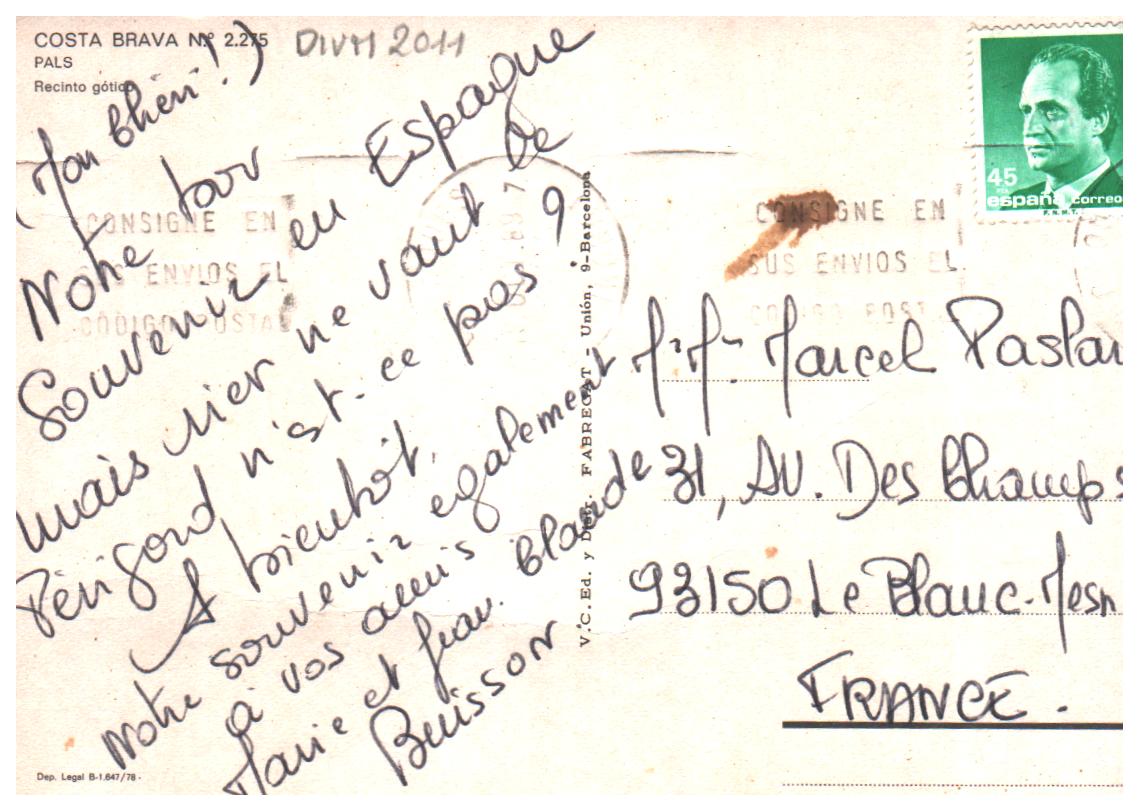 COSTA BRAVA N.º 2.275
PALS
Recinto gótico
DIVM 2011
(Mon chéri!)
Notre bor
Souvenir en Espagne
mais rien ne vaut le
Périgord n'est-ce pas ?
A bientôt.
Notre souvenir également
à vos amis
Marie et Jean. Claude
Buisson
V.C. Ed. y Distr. FABREGAT - Unión, 9-Barcelona
Dep. Legal B-1.647/78 -
45
PTA
españa correos
CONSIGNE EN
SUS ENVIOS EL
CODIGO POSTAL
CONSIGNE EN
SUS ENVIOS EL
CODIGO POST
Mr Mr Marcel
31, AV. Des Champs
93150 Le Blanc-Mesn
FRANCE.